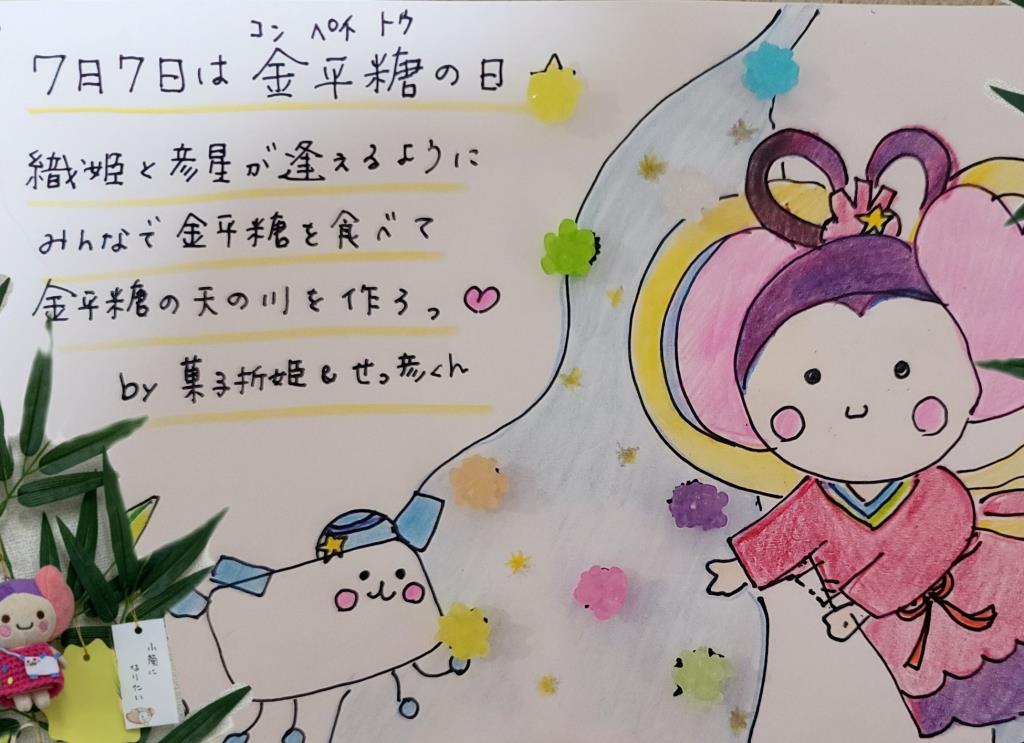 コン ペイ トウ
7月7日は 金平糖の日
織姫と彦星が逢えるように
みんなで金平糖を食べて
金平糖の天の川を作ろっ
by 菓子折姫&せっ彦くん
小菊に
なりたい